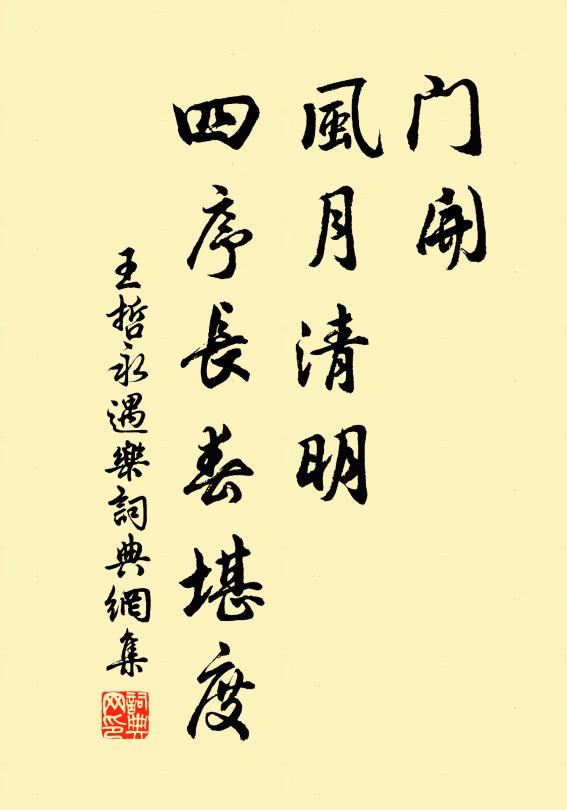 門開
風月清明
四序長春堪度
王哲永遇樂詞典網集
詞典网印